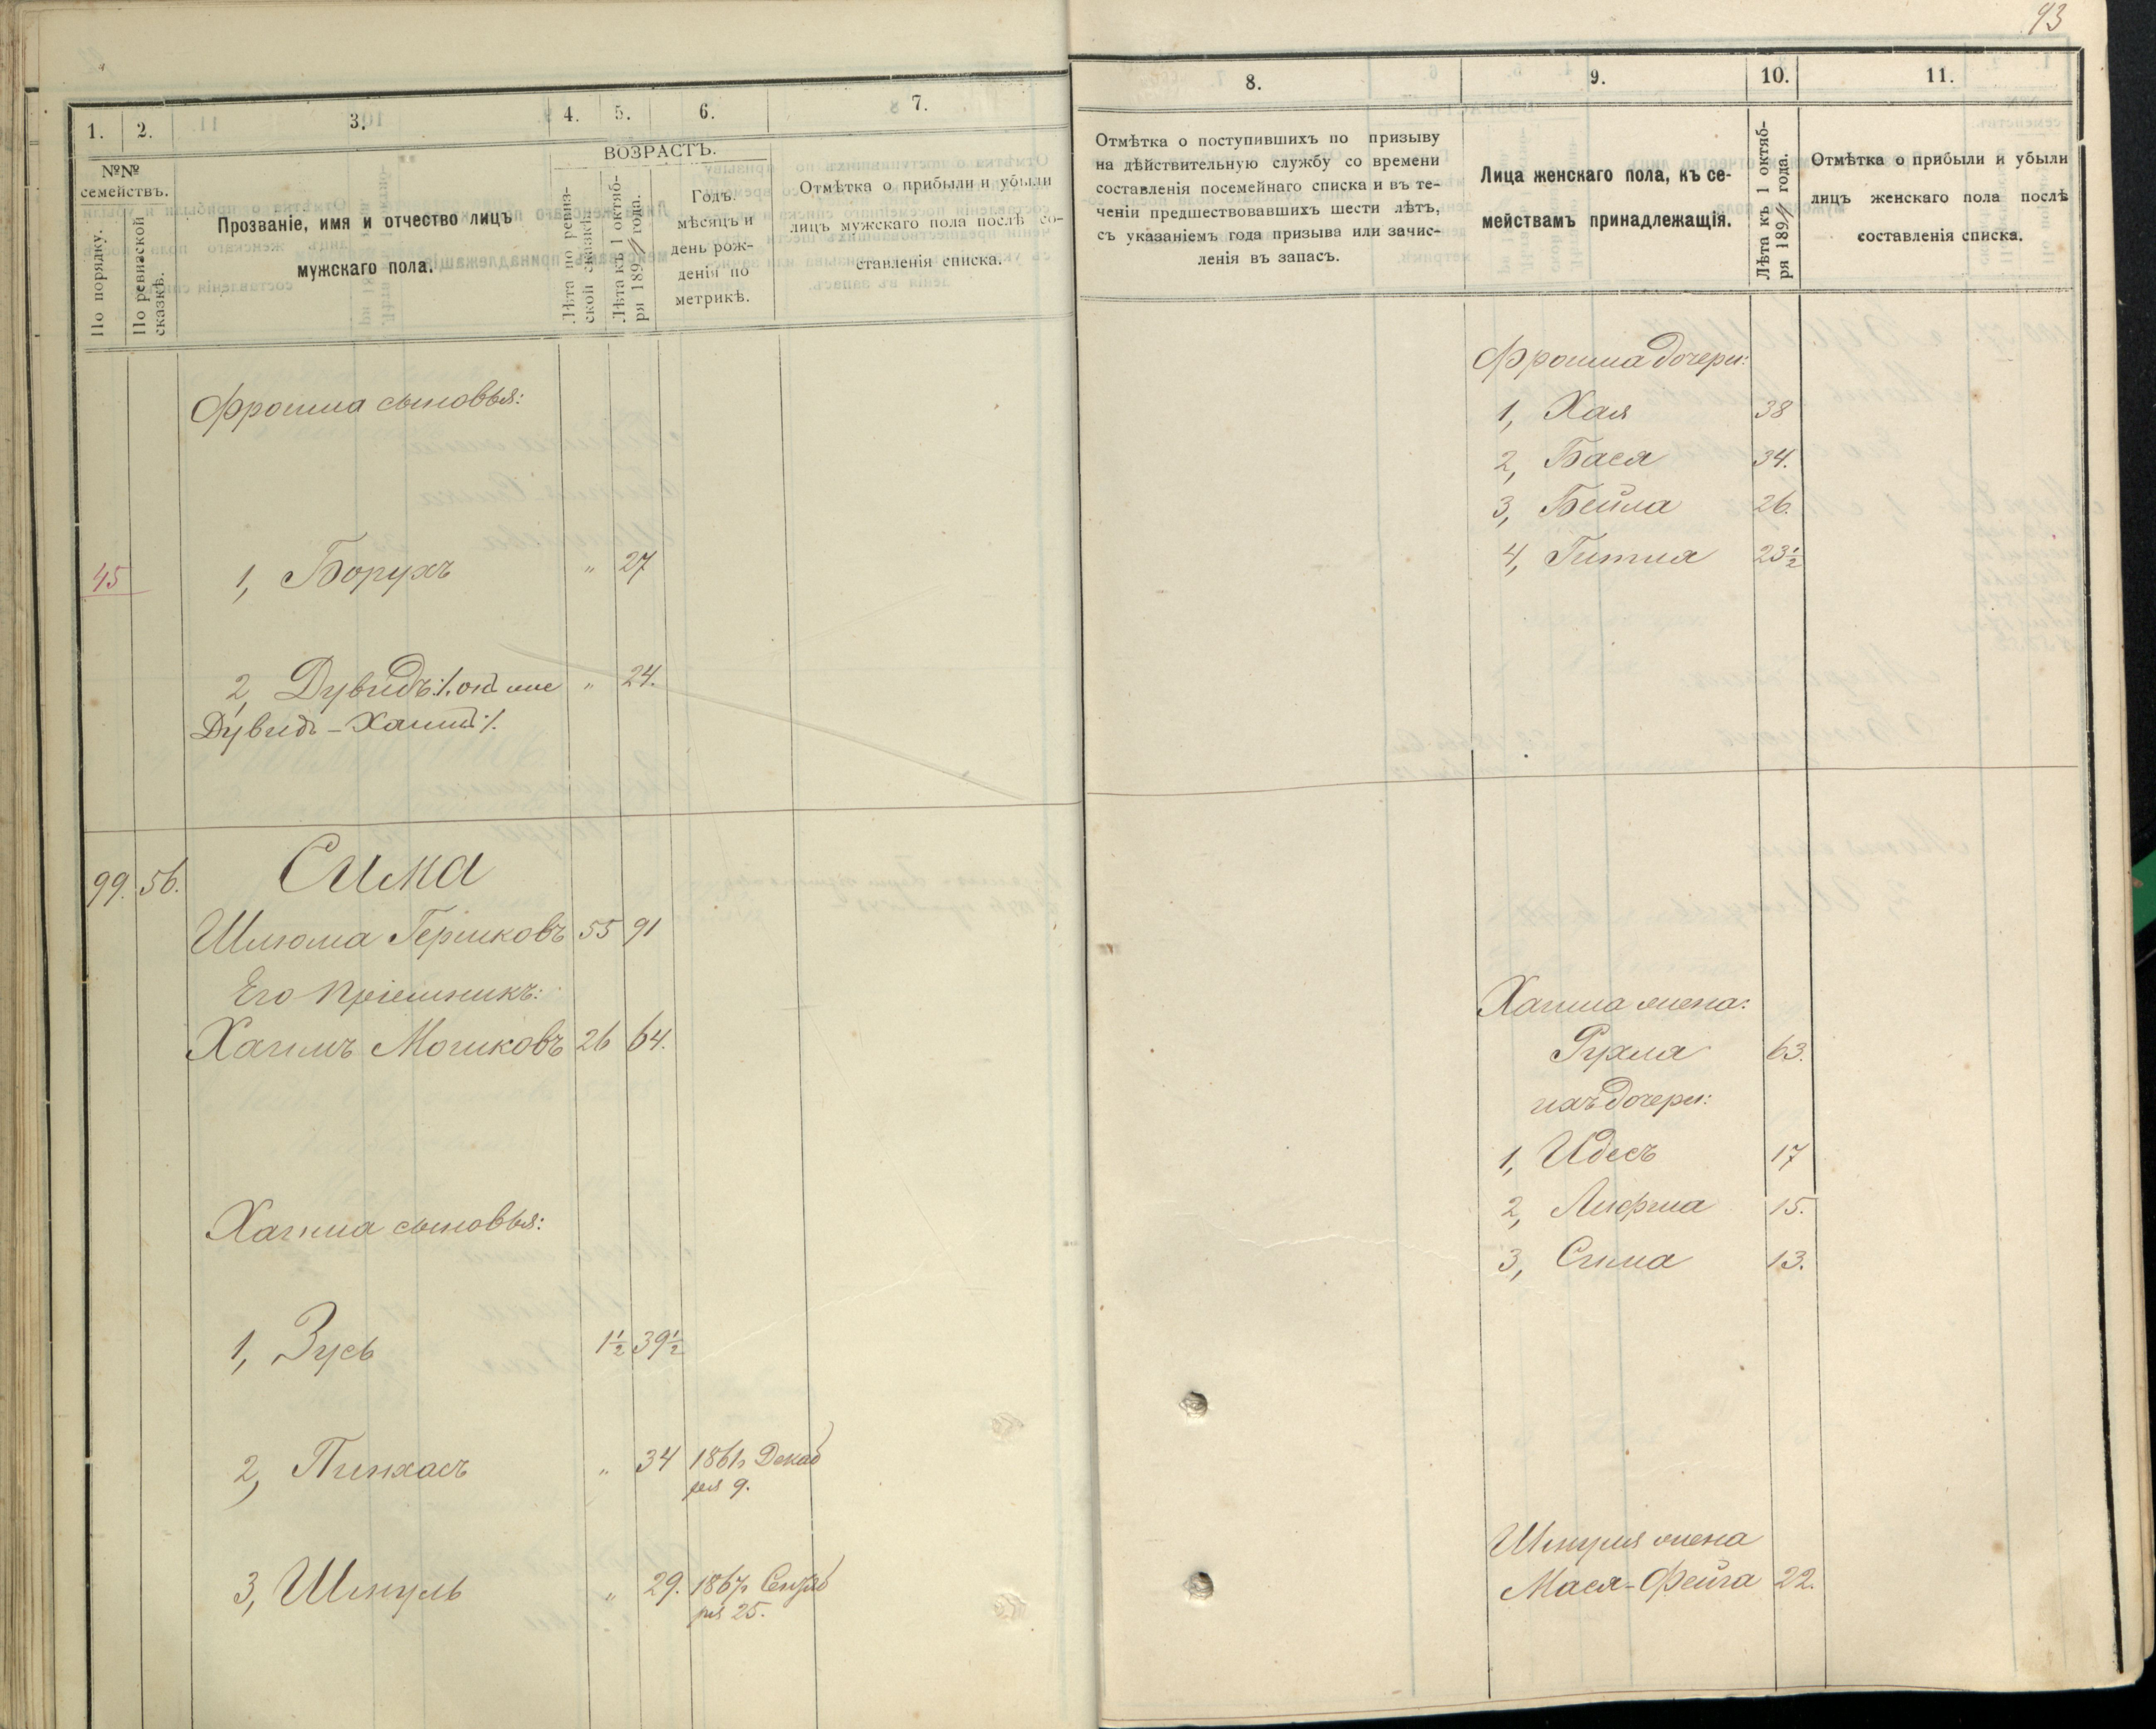 93
1.
2.
3.
4.
5.
6.
7.
№№
семействъ.
По порядку.
По ревизской
сказкѣ.
Прозваніе, имя и отчество лицъ
мужскаго пола.
ВОЗРАСТЪ.
Лѣта по ревиз-
ской сказкѣ.
Лѣта къ 1 октяб-
ря 189 года.
Годъ.
мѣсяцъ и
день рож-
денія по
метрикѣ.
Отмѣтка о прибыли и убыли
лицъ мужскаго пола послѣ со-
ставленія списка.
Фроима сыновья:
45 1, Борухъ " 27
2, Дувидъ ./. онъ же " 24.
Дувидъ-Хаимъ ./.
99. 56. Сима
Шлюома Гершковъ 55 91
Его пріемникъ:
Хаимъ Мошковъ 26 64.
Хаима сыновья:
1, Зусь 1½ 39½
2, Пинхасъ " 34 1861г Декаб
ря 9.
3, Шмуль " 29. 1867г Сентяб
ря 25.
8.
9.
10.
11.
Отмѣтка о поступившихъ по призыву
на дѣйствительную службу со времени
составленія посемейнаго списка и въ те-
ченіи предшествовавшихъ шести лѣтъ,
съ указаніемъ года призыва или зачис-
ленія въ запасъ.
Лица женскаго пола, къ се-
мействамъ принадлежащія.
Лѣта къ 1 октяб-
ря 189 года.
Отмѣтка о прибыли и убыли
лицъ женскаго пола послѣ
составленія списка.
Фроима дочери:
1, Хая 38
2, Бася 34.
3, Бейла 26.
4, Гитля 23½
Хаима жена:
Рухля 63.
ихъ дочери:
1, Идесъ 17
2, Лифша 15.
3, Сима 13.
Шмуля жена
Мася-Фейга 22.